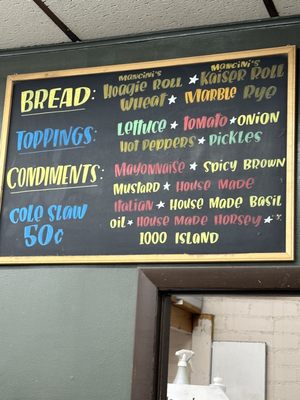 BREAD: Mancini's Hoagie Roll ★ Mancini's Kaiser Roll
Wheat ★ Marble Rye
TOPPINGS: Lettuce ★ Tomato ★ Onion
Hot Peppers ★ Pickles
CONDIMENTS: Mayonnaise ★ Spicy Brown
Mustard ★ House Made
Italian ★ House Made Basil
Oil ★ House Made Horsey ★
1000 Island
Cole Slaw
50¢